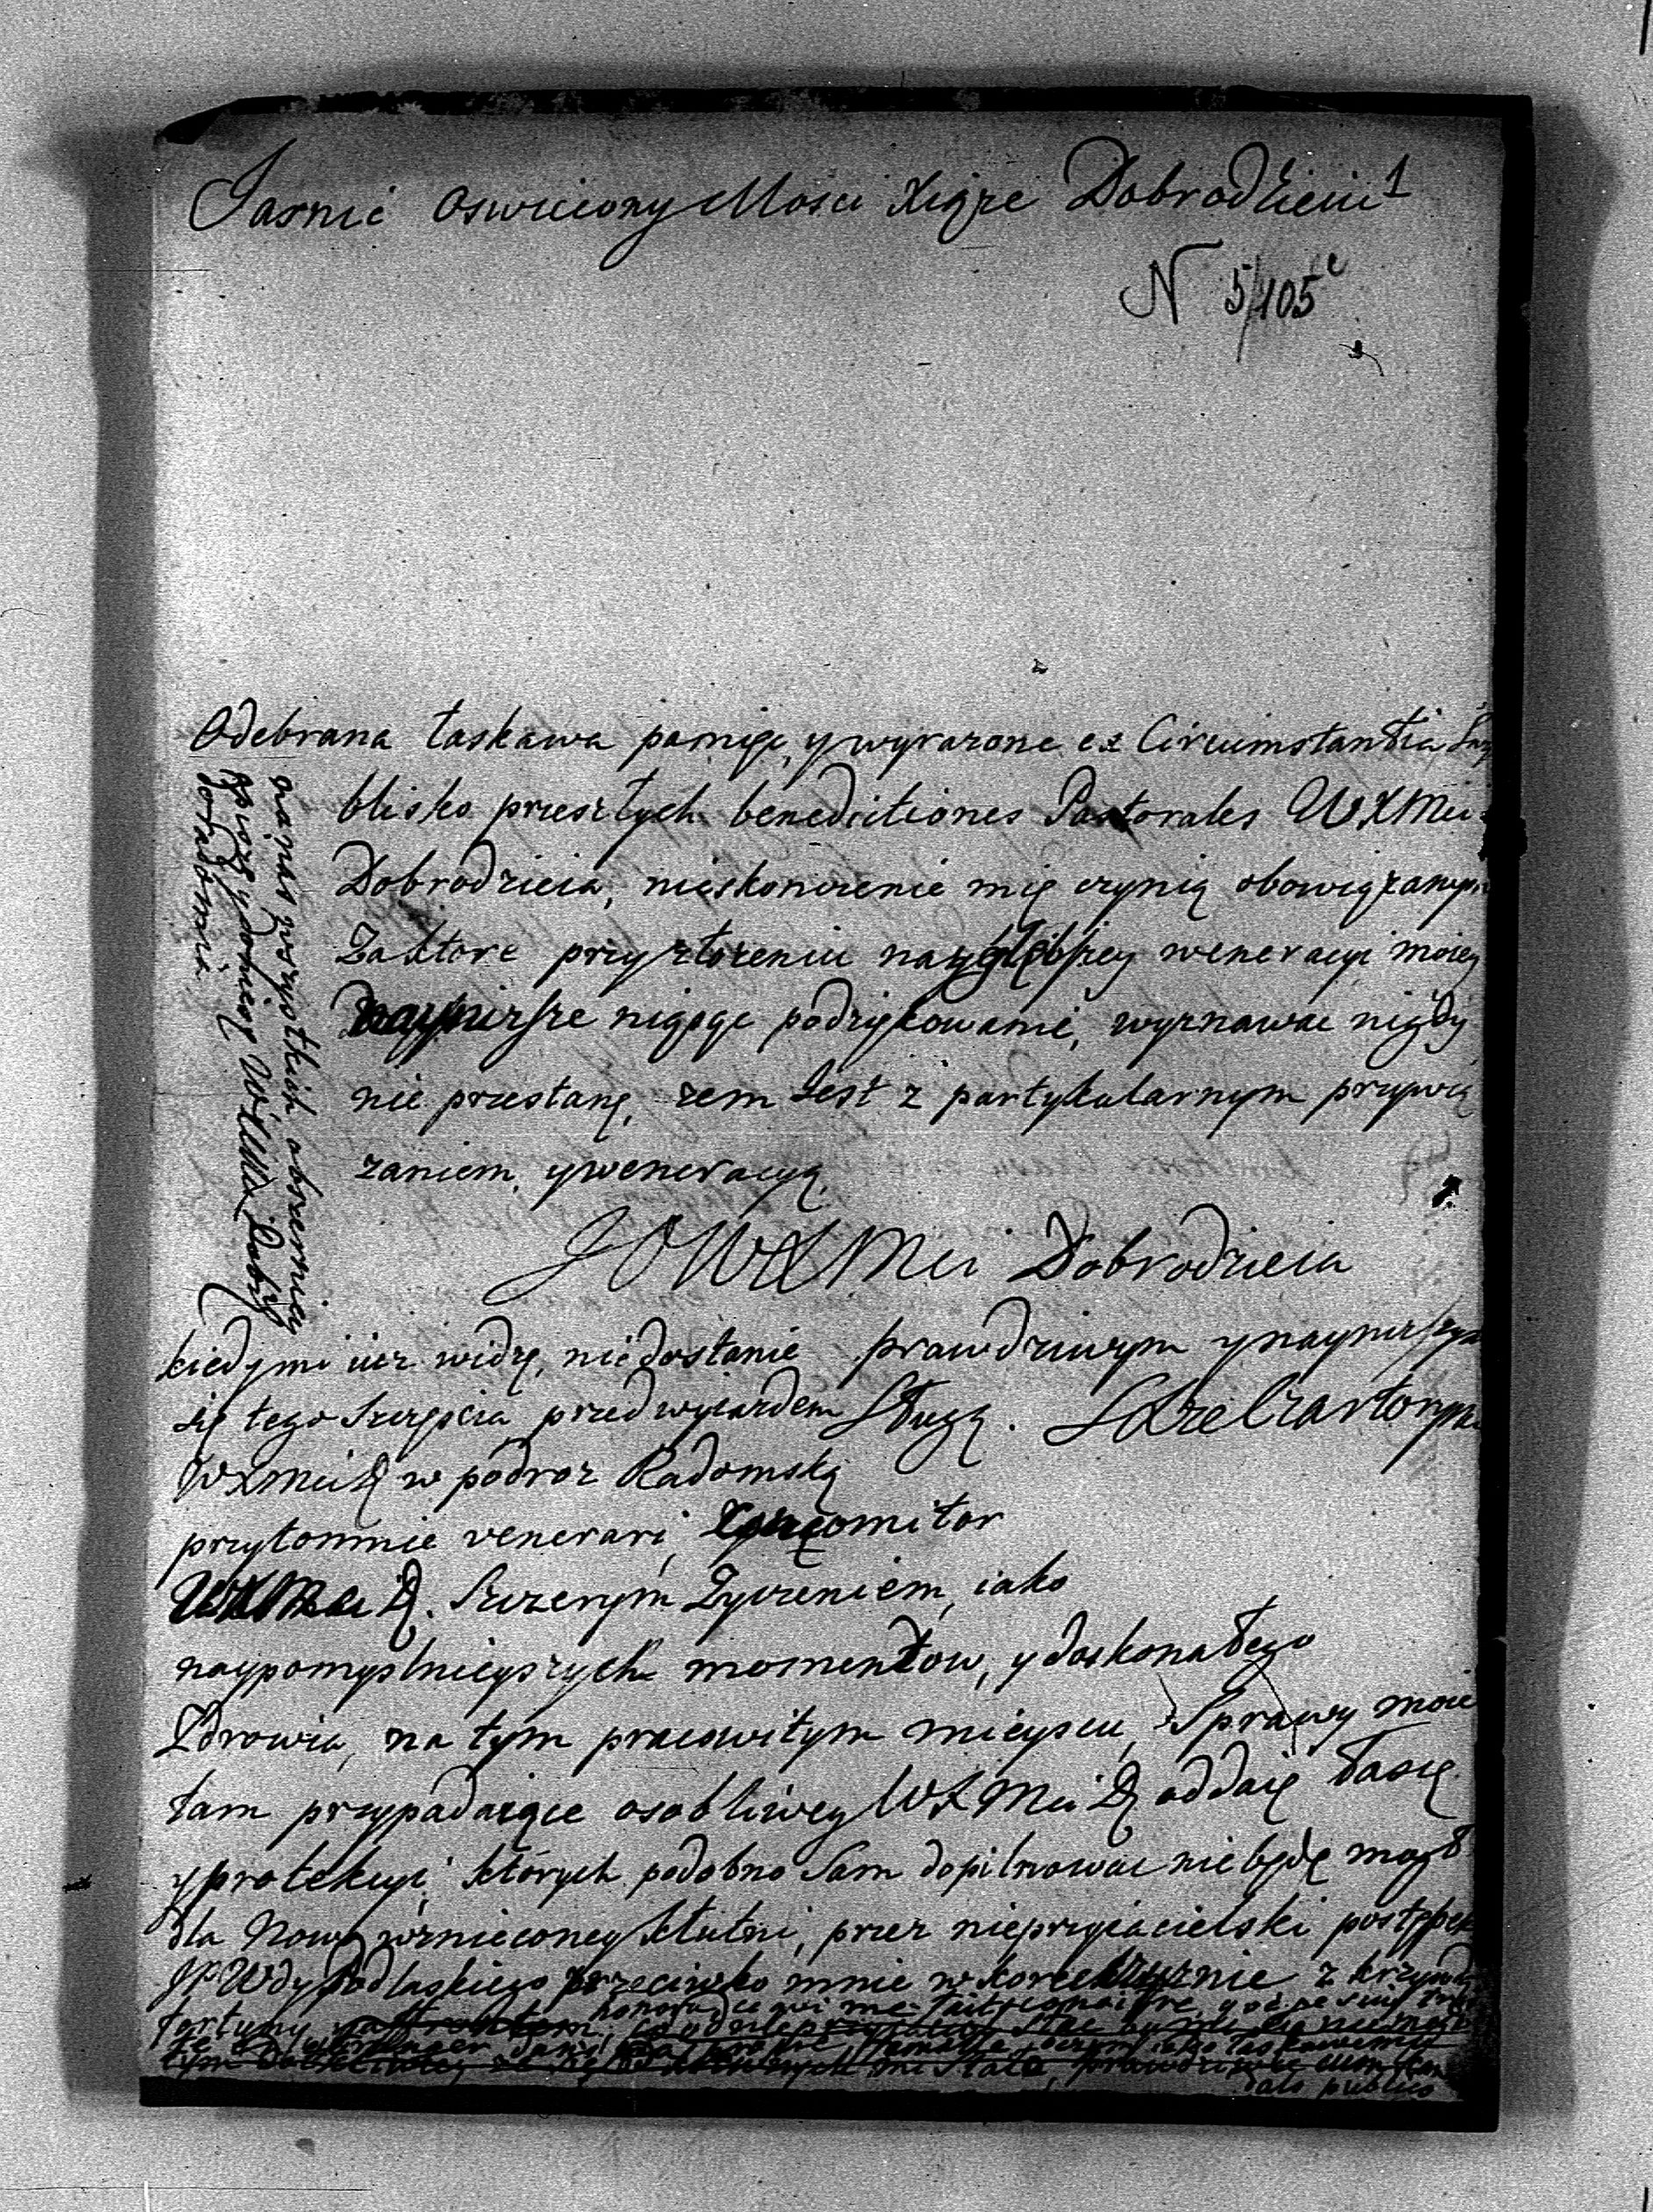 Jasnie Oswiciony Mosci Xiąze Dobrodzieiu 1
N 5/105
Odebrana łaskawa pamięc, y wyrazone ex Circumstantia
blisko przeszłych benedictiones Pastorales WXMci
Dobrodzieia, nieskonczenie mię czynią obowiązanym
Zaktore przyzłozeniu nayglębszey weneracyi moiey
naypierwsze niosąc podziękowanie, wyznawac nigdy
nie przestanę, zem Jest z partykularnym przywią
zaniem, y weneracyą,
JOWXMci Dobrodzieia
kiedy mi iusz widzę, nie dostanie prawdziwym y nayniszszym
się tego Szczęscia przed wyiazdem Sługą. Czartoryski
WXMci D w podroz Radomską
przytomnie venerari, comitor
WXMci D. Szczerym Zyczeniem, iako
naypomyslnieyszych momentow, y doskonałego
Zdrowia, na tym pracowitym mieyscu, Sprawy moie
tam przypadaiące osobliwey WXMci D oddaię łasce
y protekcyi, których podobno Sam dopilnowac nie będę mogł
dla nowo wznieconey kłutni, przez nieprzyiacielski postępek
JP Wdy Podlaskiego przeciwko mnie w Korcu z krzywdą
fortuny honoru
na nas wszystkich obszerniey
piszę y donioę WXMci Dobr